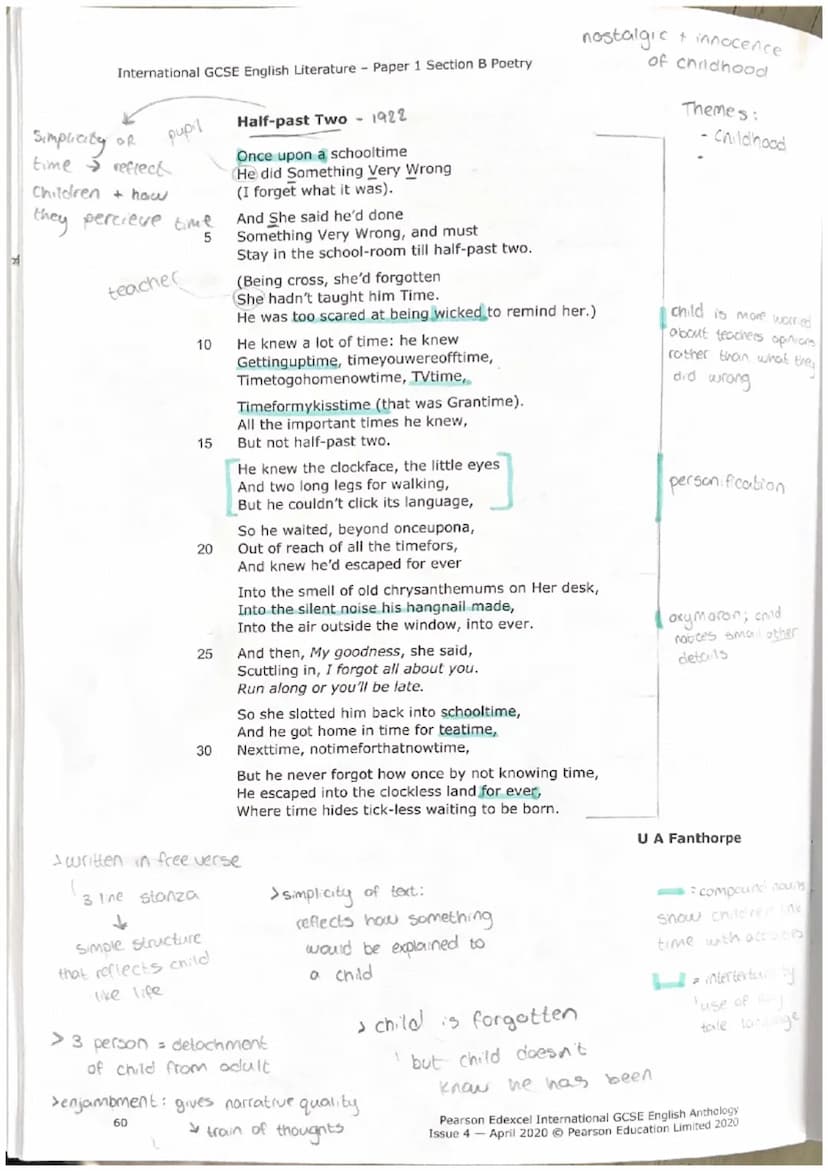 nostalgic + innocence
of childhood
International GCSE English Literature – Paper 1 Section B Poetry
Themes:
- Childhood
-
Half-past Two - 1922
Simplicity OR
time → reflect
children + how
they percieve time
pupil
Once upon a schooltime
He did Something Very Wrong
(I forget what it was).
And She said he'd done
5 Something Very Wrong, and must
Stay in the school-room till half-past two.
teacher
(Being cross, she'd forgotten
She hadn't taught him Time.
He was too scared at being wicked to remind her.)
child is more worried
about teachers opinions
rather than what they
did wrong
10 He knew a lot of time: he knew
Gettinguptime, timeyouwereofftime,
Timetogohomenowtime, TVtime,
Timeformykisstime (that was Grantime).
All the important times he knew,
15 But not half-past two.
He knew the clockface, the little eyes
And two long legs for walking,
But he couldn't click its language,
personification
So he waited, beyond onceupona,
20 Out of reach of all the timefors,
And knew he'd escaped for ever
Into the smell of old chrysanthemums on Her desk,
Into the silent noise his hangnail made,
Into the air outside the window, into ever.
oxymoron; child
notices small other
details
25 And then, My goodness, she said,
Scuttling in, I forgot all about you.
Run along or you'll be late.
So she slotted him back into schooltime,
And he got home in time for teatime,
30 Nexttime, notimeforthatnowtime,
But he never forgot how once by not knowing time,
He escaped into the clockless land for ever,
Where time hides tick-less waiting to be born.
U A Fanthorpe
> written in free verse
3 line stanza
↓
simple structure
that reflects child
like life
> simplicity of text:
reflects how something
would be explained to
a child
= compound nouns
show children link
time with
= intertextuality
use of
tale language
> child is forgotten
but child doesn't
know he has been
> 3 person = detachment
of child from adult
> enjambment: gives narrative quality
↳ train of thoughts
60
Pearson Edexcel International GCSE English Anthology
Issue 4 — April 2020 © Pearson Education Limited 2020